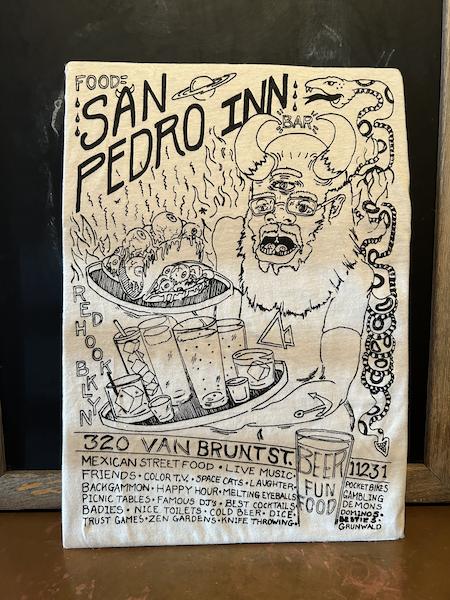 FOOD
SAN
PEDRO INN
BAR
RED HOOK BKLYN
320 VAN BRUNT ST.
MEXICAN STREET FOOD • LIVE MUSIC •
FRIENDS • COLOR T.V. • SPACE CATS • LAUGHTER
BACKGAMMON • HAPPY HOUR • MELTING EYEBALLS
PICNIC TABLES • FAMOUS DJ'S • BEST COCKTAILS
BADIES • NICE TOILETS • COLD BEER • DICE
TRUST GAMES • ZEN GARDENS • KNIFE THROWING •
BEER
FUN
FOOD
11231
POCKET BIKES
GAMBLING
DEMONS
DOMINOS •
BESTIES
GRUNWALD